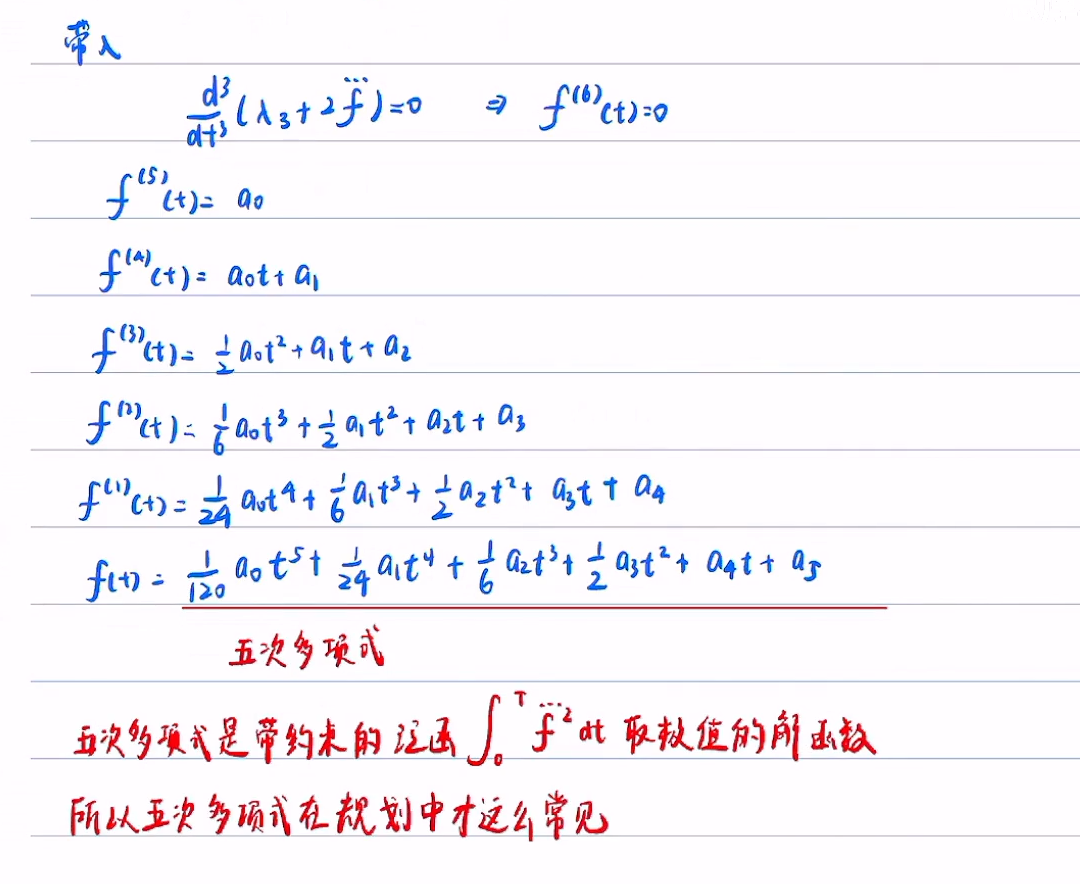 带入
d³/dt³ (λ₃ + 2f⃛) = 0 ⇒ f⁽⁶⁾(t) = 0
f⁽⁵⁾(t) = a₀
f⁽⁴⁾(t) = a₀t + a₁
f⁽³⁾(t) = 1/2 a₀t² + a₁t + a₂
f⁽²⁾(t) = 1/6 a₀t³ + 1/2 a₁t² + a₂t + a₃
f⁽¹⁾(t) = 1/24 a₀t⁴ + 1/6 a₁t³ + 1/2 a₂t² + a₃t + a₄
f(t) = 1/120 a₀t⁵ + 1/24 a₁t⁴ + 1/6 a₂t³ + 1/2 a₃t² + a₄t + a₅
五次多项式
五次多项式是带约束的泛函 ∫₀ᵀ f⃛² dt 取极值的解函数
所以五次多项式在规划中才这么常见